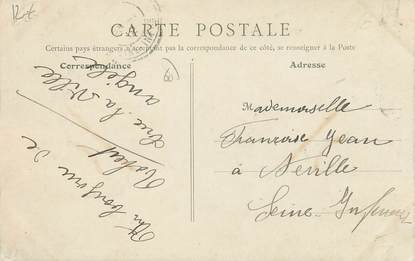 CARTE POSTALE
Certains pays étrangers n'acceptant pas la correspondance de ce côté, se renseigner à la Poste
Correspondance
Adresse
Un bonjour de
Robert
rue la Ville
Mademoiselle
Françoise Jean
à Néville
Seine-Inférieure